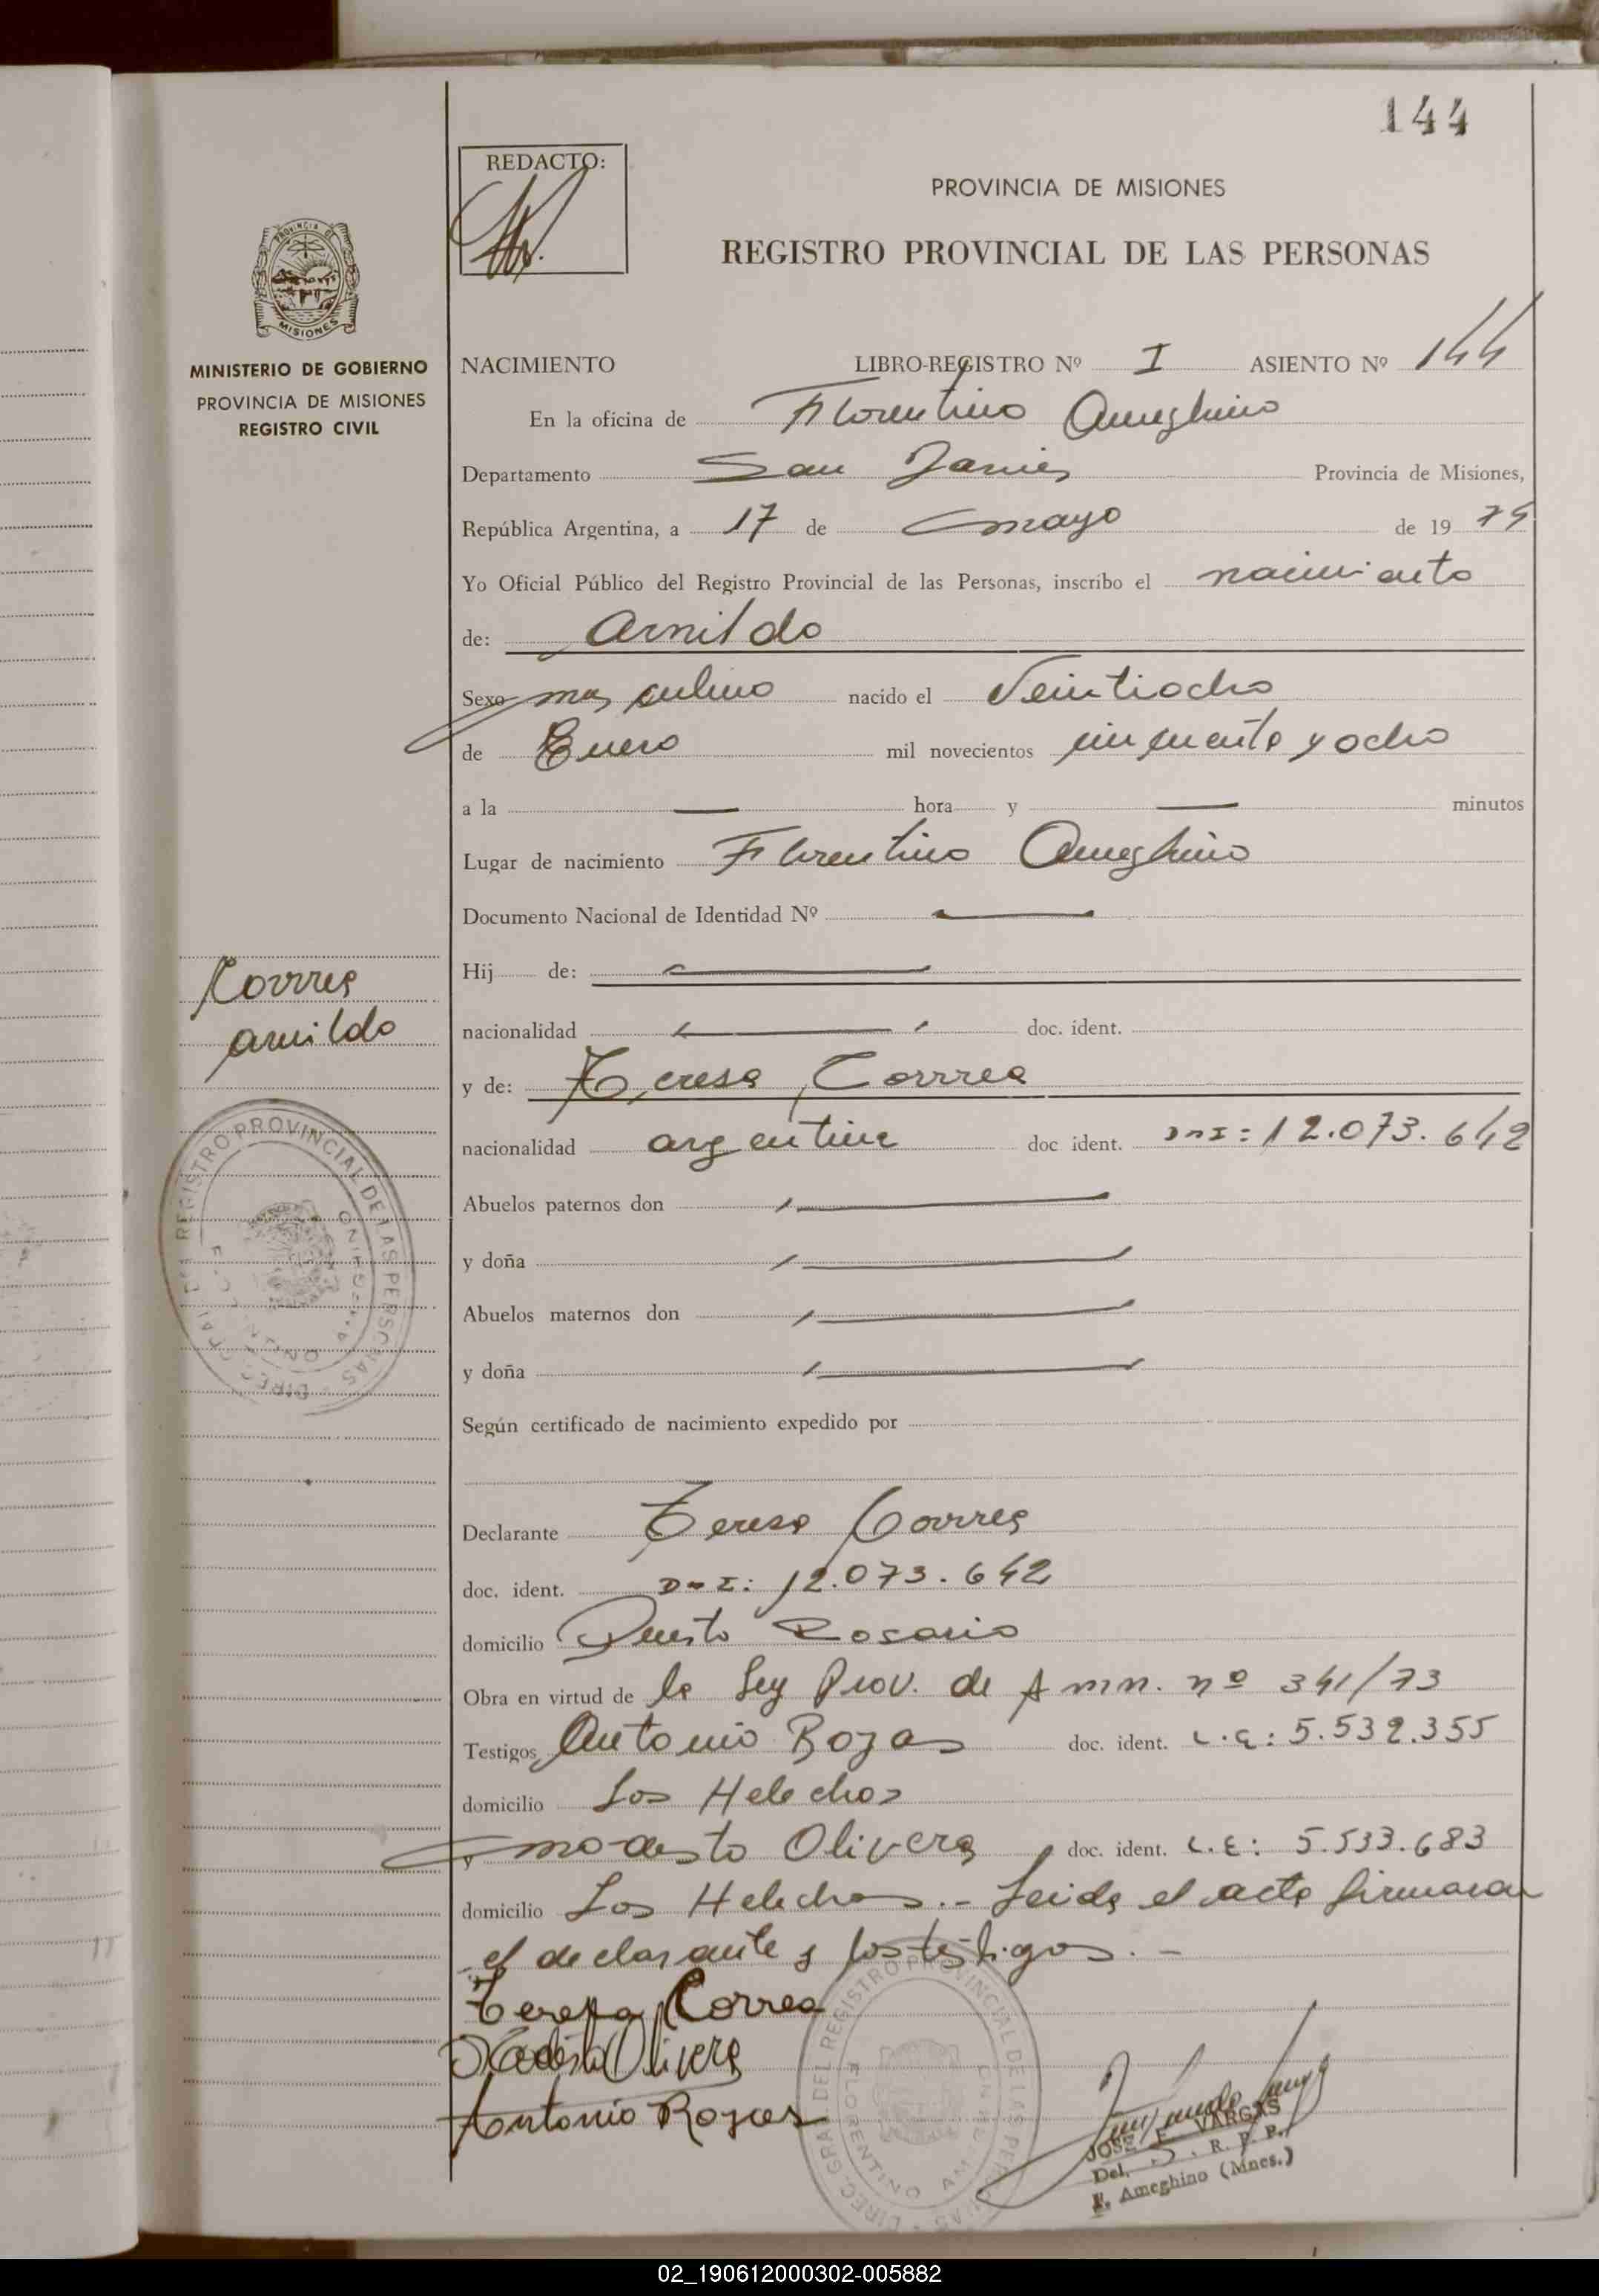 144
REDACTO:
PROVINCIA DE MISIONES
REGISTRO PROVINCIAL DE LAS PERSONAS
PROVINCIA DE MISIONES
MINISTERIO DE GOBIERNO
PROVINCIA DE MISIONES
REGISTRO CIVIL
NACIMIENTO LIBRO-REGISTRO Nº I ASIENTO Nº 144
En la oficina de Florentino Ameghino
Departamento San Javier Provincia de Misiones,
República Argentina, a 17 de mayo de 19
Yo Oficial Público del Registro Provincial de las Personas, inscribo el nacimiento
de: Arnildo
Sexo masculino nacido el Veintiocho
de Enero mil novecientos cincuenta y ocho
a la — hora y — minutos
Lugar de nacimiento Florentino Ameghino
Documento Nacional de Identidad Nº —
Hij de: —
nacionalidad — doc. ident.
y de: Teresa Correa
nacionalidad argentina doc ident. DNI: 12.073.642
Abuelos paternos don —
y doña —
Abuelos maternos don —
y doña —
Según certificado de nacimiento expedido por
Declarante Teresa Correa
doc. ident. DNI: 12.073.642
domicilio Puerto Rosario
Obra en virtud de la Ley Prov. de Amn. nº 341/73
Testigos Antonio Rojas doc. ident. L.E: 5.532.355
domicilio Los Helechos
y modesto Olivera doc. ident. L.E: 5.533.683
domicilio Los Helechos.- Leida el acta firmaron
el declarante y los testigos.-
Teresa Correa
Modesto Olivera
Antonio Rojas
Correa
Arnildo
DIREC. GRAL. DEL REGISTRO PROVINCIAL DE LAS PERSONAS
FLORENTINO AMEGHINO
DIREC. GRAL. DEL REGISTRO PROVINCIAL DE LAS PERSONAS
FLORENTINO AMEGHINO
JOSE E. VARGAS
Del. R. P. P.
F. Ameghino (Mnes.)
02_190612000302-005882